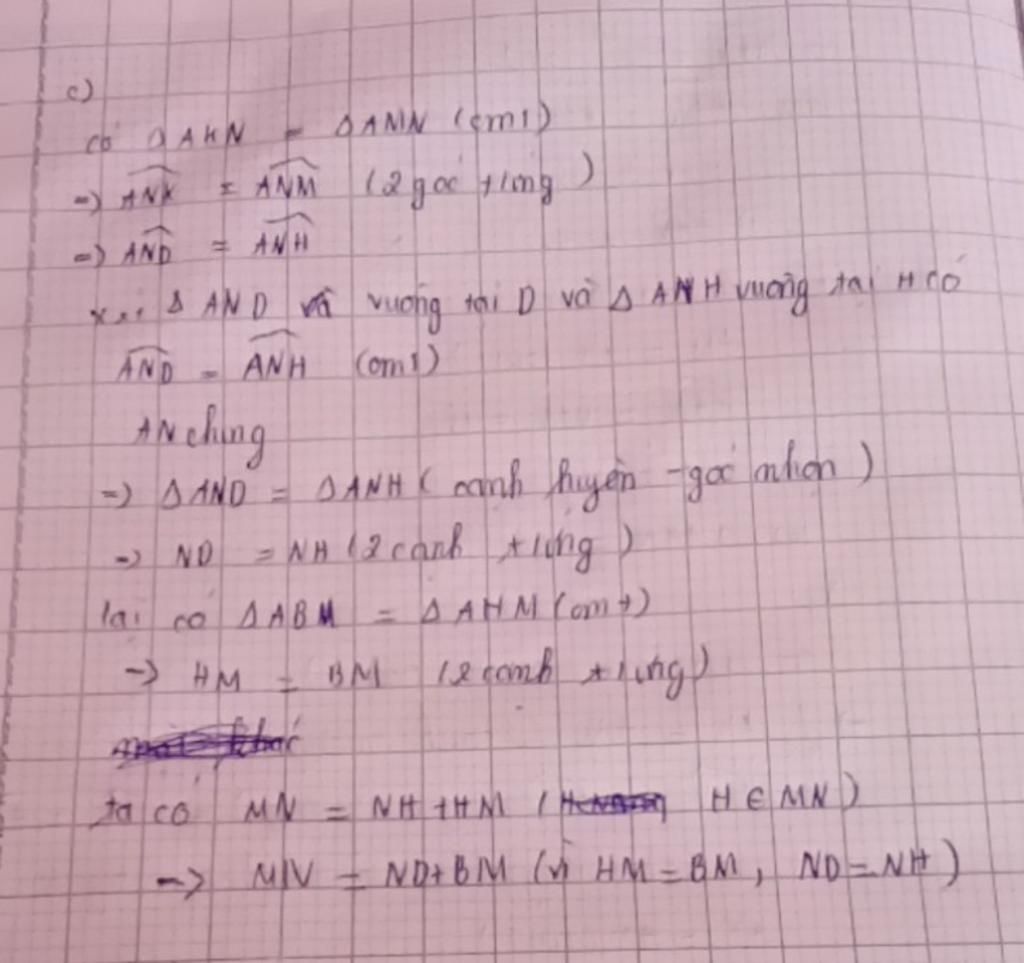 c)
có ΔAKN = ΔAMN (cmt)
=) ANK = ANM (2 góc tứng)
=) AND = ANH
xét Δ AND vuông tại D và Δ ANH vuông tại H có
AND = ANH (cmt)
AN chung
=) ΔAND = ΔANH (cạnh huyền - góc nhọn)
=) ND = NH (2 cạnh tứng)
lại có ΔABM = ΔAHM (cmt)
=) HM = BM (2 cạnh tứng)
ta có MN = NH + HM (H ∈ MN)
=> MN = ND + BM (vì HM = BM, ND = NH)